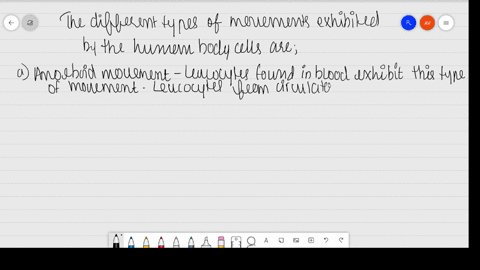 The different types of movements exhibited
by the human body cells are;
a) Amoeboid movement - Leucocytes found in blood exhibit this type
of movement. Leucocytes from circulato